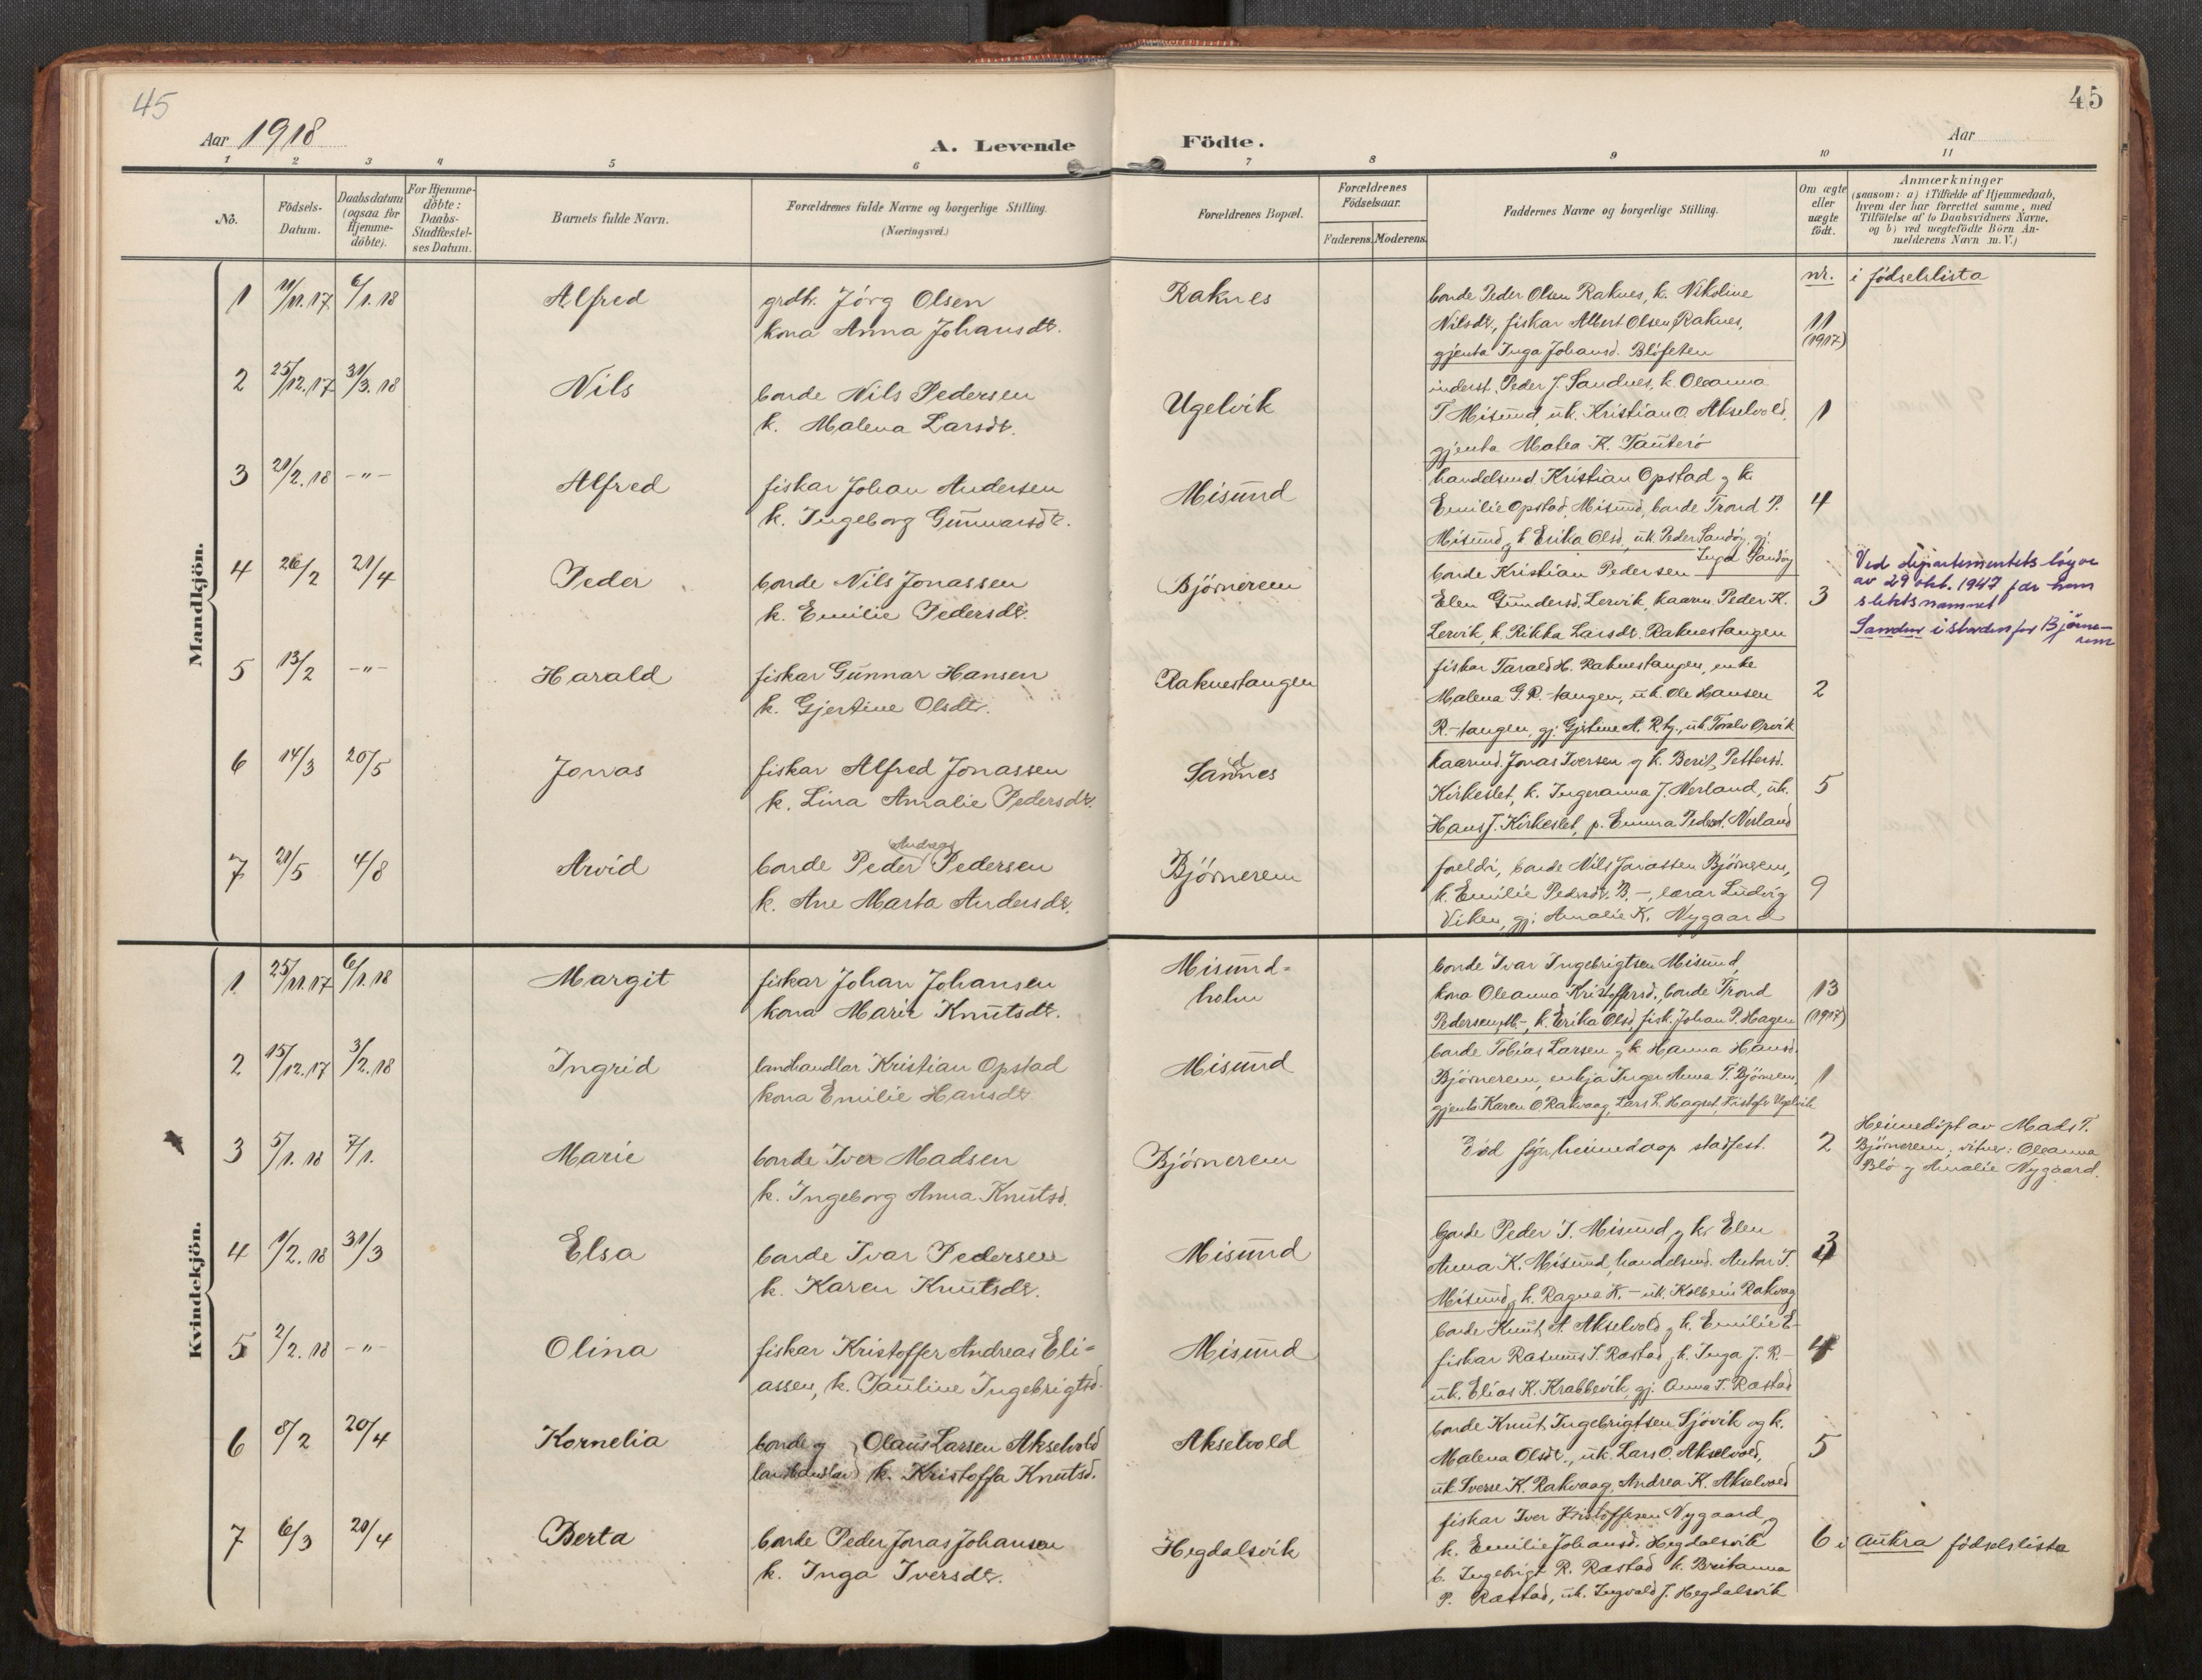 45
45
Aar 1918
A. Levende
Födte.
Aar
1 2 3 4 5 6 7 8 9 10 11
No.
Födsels-
Datum.
Daabsdatum
(ogsaa for
Hjemme-
döbte).
For Hjemme-
döbte:
Daabs-
Stadfæstel-
ses Datum.
Barnets fulde Navn.
Forældrenes fulde Navne og borgerlige Stilling.
(Næringsvei.)
Forældrenes Bopæl.
Forældrenes
Födselsaar.
Faderens. Moderens.
Faddernes Navne og borgerlige Stilling.
Om ægte
eller
uægte
födt.
Anmærkninger
(saasom: a) i Tilfælde af Hjemmedaab,
hvem der har forrettet samme, med
Tilföielse af to Daabsvidners Navne,
og b) ved uægtefödte Börn An-
melderens Navn m. V.)
nr. i födselslista
Mandkjön.
1 11/11.17 6/1.18 Alfred
grdbr. Jörg Olsen
kona Anna Johansdtr.
Raknes
bonde Peder Olsen Raknes, k. Nikoline
Nilsdtr, fiskar Albert Olsen Raknes,
gjenta Inga Johansd. Blöfeten
11
(1917)
2 25/12.17 31/3.18 Nils
bonde Nils Pedersen
k. Malena Larsdtr.
Ugelvik
inderst. Peder J. Sandnes, k. Oleanna
T. Misund, uk. Kristian O. Akselvold,
gjenta Matea K. Tauterö
1
3 21/2.18 -"- Alfred
fiskar Johan Andersen
k. Ingeborg Gunnarsdtr.
Misund
handelsmd. Kristian Opstad og k.
Emilie Opstad, Misund, bonde Trond P.
Misund og k. Erika Olsd., uk. Peder Sandöy, gj.
Inga Sandöy
4
4 26/2 21/4 Peder
bonde Nils Jonassen
k. Emilie Pedersdtr.
Björnerem
bonde Kristian Pedersen
Elen Gundersd. Lervik, kaarm. Peder K.
Lervik, k. Rikka Larsdtr. Raknestangen
3
Ved departementets löyve
av 29 okt. 1947 fær han
slektsnamnet
Sandnes i staden for Björne-
rem
5 13/2 -"- Harald
fiskar Gunnar Hansen
k. Gjertine Olsdtr.
Raknestangen
fiskar Tarald H. Raknestangen, enke
Malena G. R.-tangen, uk. Ole Hansen
R.-tangen, gj. Gjertine A. R.tg., uk. Toralv Orvik
2
6 14/3 20/5 Jonas
fiskar Alfred Jonassen
k. Lina Amalie Pedersdtr.
Sandnes
kaarmd. Jonas Iversen og k. Berit Pettersd.
Kirkeslet, k. Ingeranna J. Nerland, uk.
Hans J. Kirkeslet, p. Emma Pedersd. Nerland
5
7 21/5 4/8 Arvid
Andreas
bonde Peder Pedersen
k. Ane Marta Andersdtr.
Björnerem
foreldri, bonde Nils Jonassen Björnerem,
k. Emilie Pedersdtr. B.-, lærar Ludvig
Viken, gj. Amalie K. Nygaard
9
Kvindekjön.
1. 25/11.17 6/1.18 Margit
fiskar Johan Johansen
kona Marie Knutsdtr.
Misund-
holm
bonde Ivar Ingebrigtsen Misund,
kona Oleanna Kristoffersd., bonde Trond
Pedersen, M.-, k. Erika Olsd, fisk. Johan P. Hagen
13
(1917)
2 15/12.17 3/2.18 Ingrid
landhandlar Kristian Opstad
kona Emilie Hansdtr.
Misund
bonde Tobias Larsen og k. Hanna Hansd.
Björnerem, enkja Inger Anna T. Björnerem,
gjenta Karen O. Rakvaag, Lars L. Hagset, Kristofr Ugelvik
1
3 5/1.18 7/1. Marie
bonde Iver Madsen
k. Ingeborg Anna Knutsd.
Björnerem
Död för heimedaap stadfest.
2
Heimedöpt av Mads T.
Björnerem; vitner: Oleanna
Blö og Amalie Nygaard.
4 9/2.18 31/3 Elsa
bonde Ivar Pedersen
k. Karen Knutsdtr.
Misund
bonde Peder I. Misund og k. Elen
Anna K. Misund, handelsmd. Anton T.
Misund og k. Ragna K.- uk. Kolbein Rakvaag
3
5 2/2.18 -"- Olina
fiskar Kristoffer Andreas Eli-
assen, k. Pauline Ingebrigtsd.
Misund
bonde Knut A. Akselvold og k. Emilie E-
fiskar Rasmus I. Rœstad og k. Inga J. R.-
uk. Elias K. Krabbevik, gj. Anna T. Rœstad
4
6 8/2 20/4 Kornelia
bonde og } Olaus Larsen Akselvold
landhandlar } k. Kristoffa Knutsd.
Akselvold
bonde Knut Ingebrigtsen Sjövik og k.
Malena Olsdtr., uk. Lars O. Akselvold,
uk. Sverre K. Rakvaag, Andrea K. Akselvold
5
7 6/3 20/4 Berta
bonde Peder Jonas Johansen
k. Inga Iversdtr.
Hegdalsvik
fiskar Iver Kristoffersen Nygaard, og
k. Emilie Johansd. Hegdalsvik
b. Ingebrigt R. Rœstad k. Britanna
P. Rœstad, uk. Ingvald J. Hegdalsvik
6 i Aukra födselslista